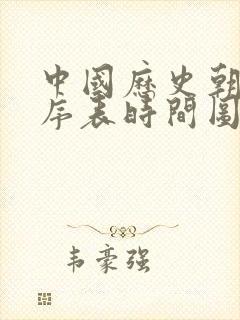 中國歷史朝
序表時間圖
韦豪强